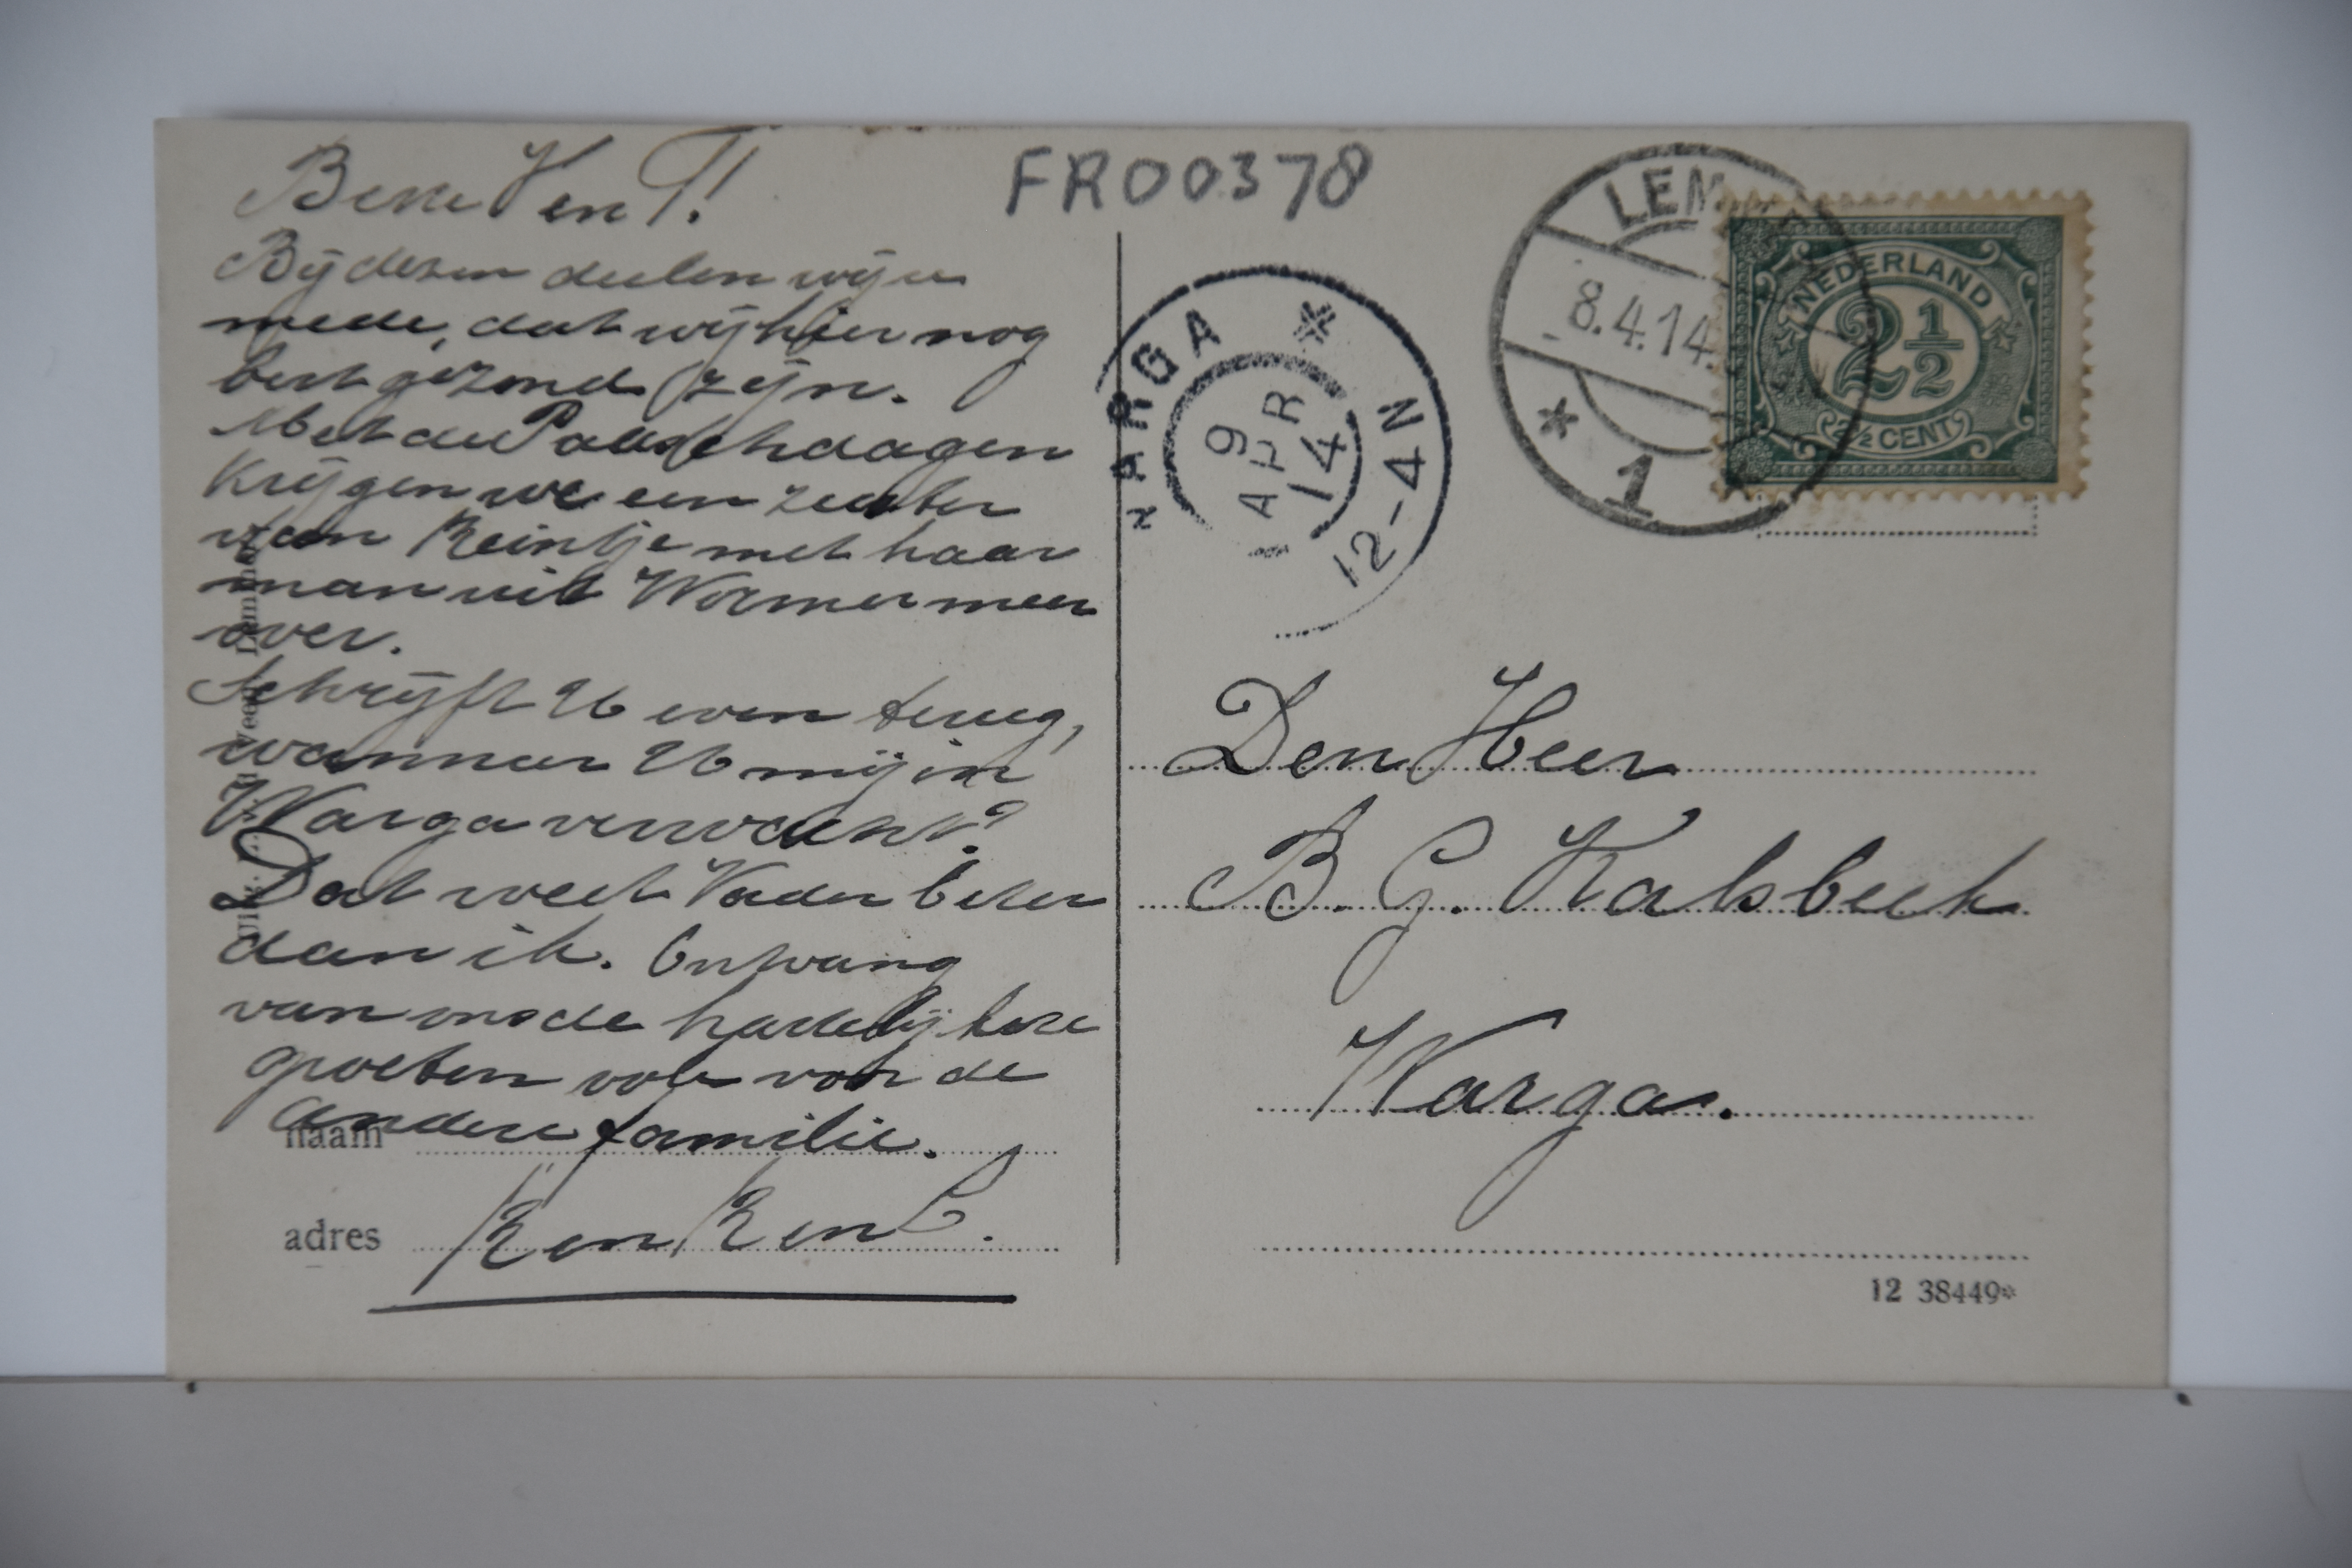 FR00378
Beve V en T!
Bij dezen deelen wij u
mede, dat wij hier nog
best gezond zijn.
Met de Paaschdagen
Krijgen we een zuster
van Reintje met haar
man uit Wormermeer
over.
Schrijft U even terug,
wanneer U mij in
Warga verwacht?
Dat weet Vader beter
dan ik. Ontvang
van ons de hartelijkste
groeten ook voor de
andere familie.
R en R en
naam
adres
LEMMER
8.4.14
1
WARGA
9 APR 14
12-4N
NEDERLAND
2½
2½ CENT
Den Heer
B. G. Kalsbeek
Warga.
12 38449*